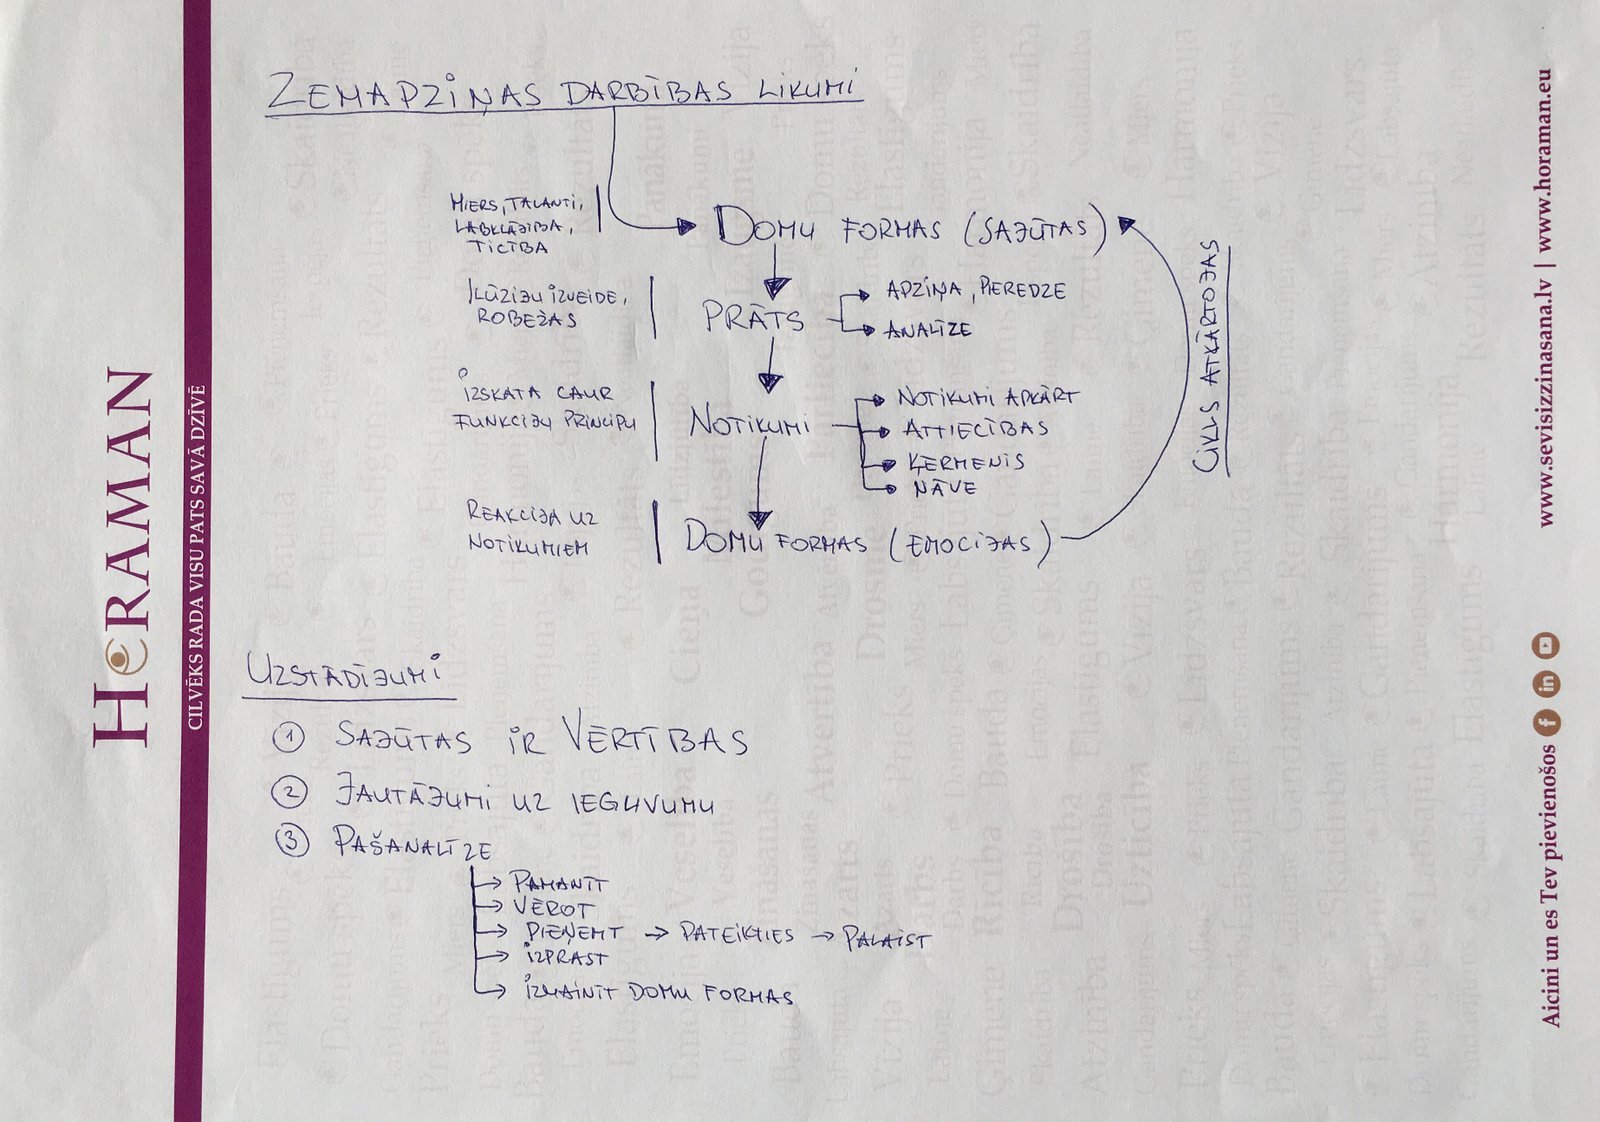 ZEMAPZIŅAS DARBĪBAS LIKUMI
MIERS, TALANTI,
LABKLĀJĪBA,
TICĪBA
DOMU FORMAS (SAJŪTAS)
ILŪZIJU IZVEIDE,
ROBEŽAS
PRĀTS
APZIŅA, PIEREDZE
ANALĪZE
IZSKATA CAUR
FUNKCIJU PRINCIPU
NOTIKUMI
NOTIKUMI APKĀRT
ATTIECĪBAS
ĶERMENIS
NĀVE
REAKCIJA UZ
NOTIKUMIEM
DOMU FORMAS (EMOCIJAS)
CIKLS ATKĀRTOJAS
UZSTĀDĪJUMI
1 SAJŪTAS IR VĒRTĪBAS
2 JAUTĀJUMI UZ IEGUVUMU
3 PAŠANALĪZE
PAMANĪT
VĒROT
PIEŅEMT → PATEIKTIES → PALAIST
IZPRAST
IZMAINĪT DOMU FORMAS
HORAMAN
CILVĒKS RADA VISU PATS SAVĀ DZĪVĒ
Aicini un es Tev pievienošos f in www.sevisizzinasana.lv | www.horaman.eu